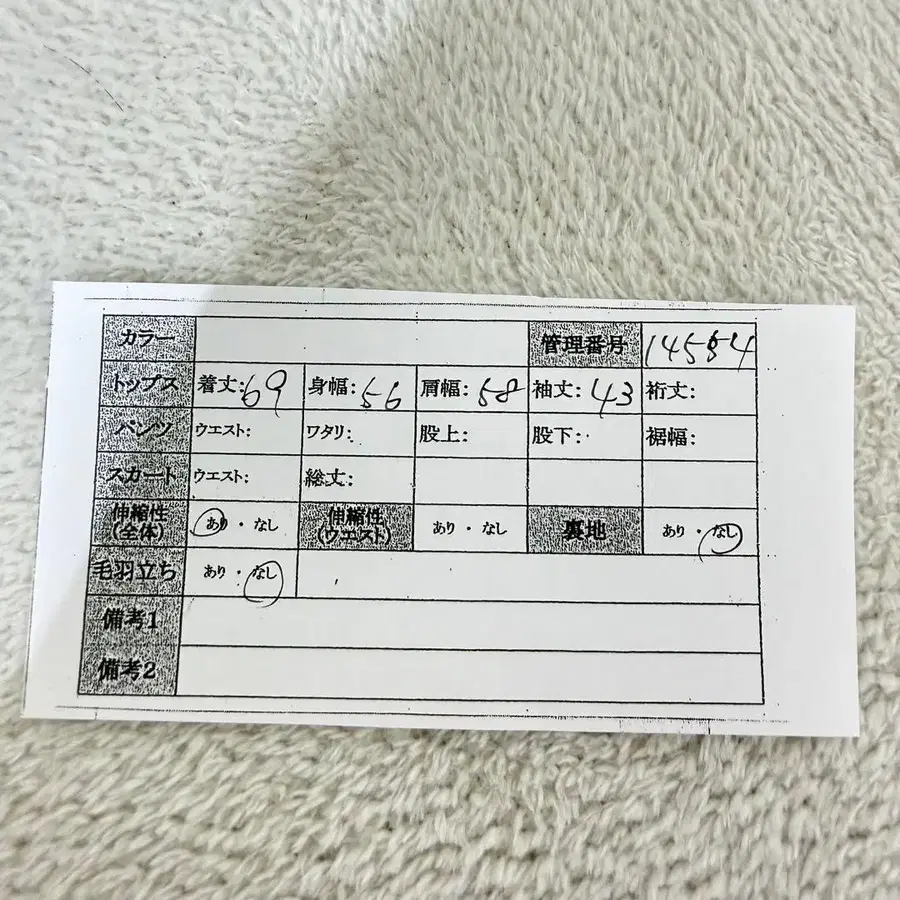 カラー 管理番号 14554
トップス 着丈:69 身幅:56 肩幅:58 袖丈:43 裄丈:
パンツ ウエスト: ワタリ: 股上: 股下: 裾幅:
スカート ウエスト: 総丈:
伸縮性(全体) あり・なし 伸縮性(ウエスト) あり・なし 裏地 あり・なし
毛羽立ち あり・なし
備考1
備考2